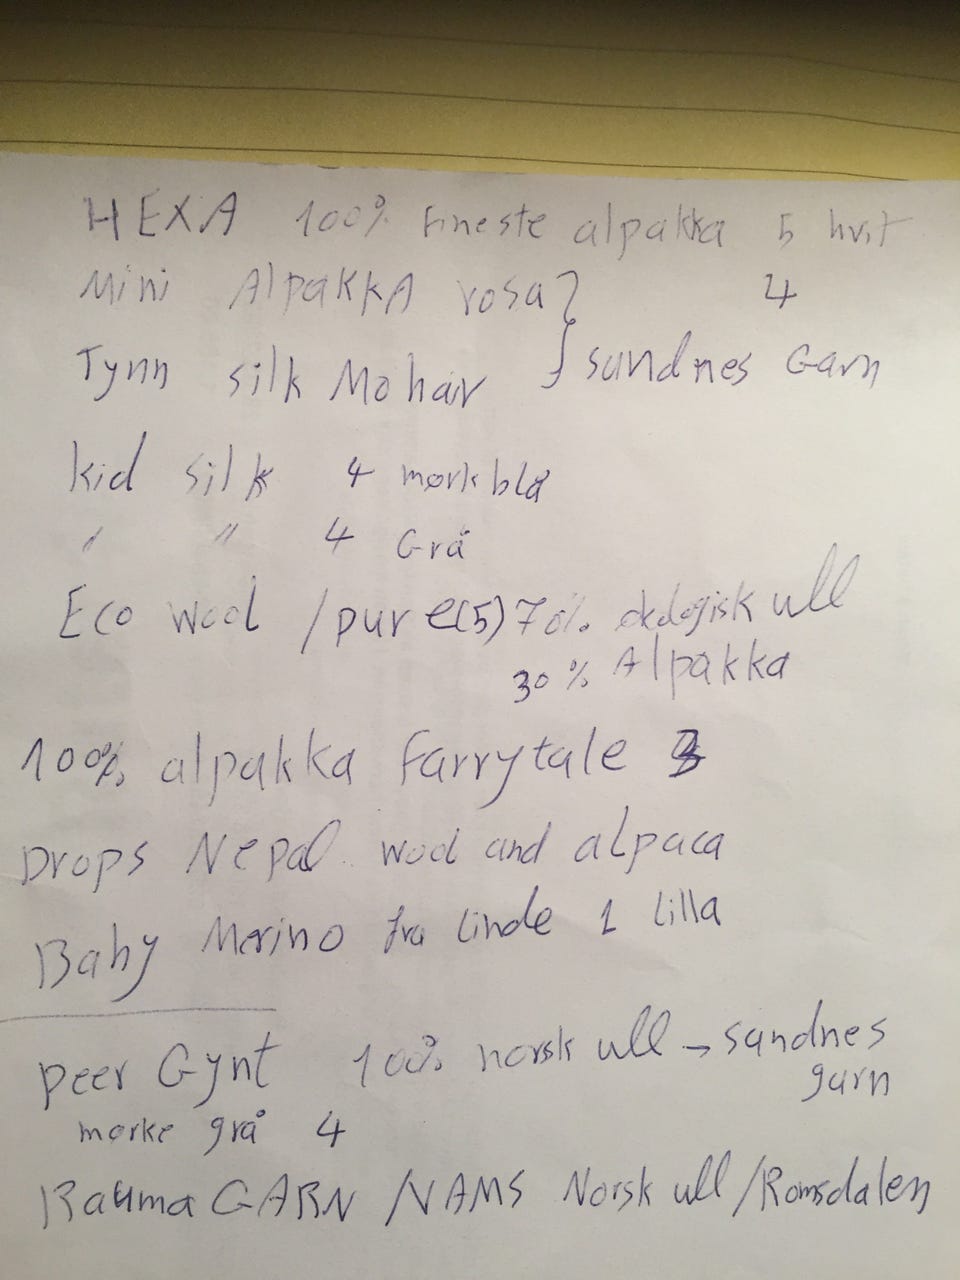 HEXA 100% Fineste alpakka 5 hvit
Mini AlpakkA rosa } 4
Tynn silk Mohair } sandnes Garn
kid silk 4 mørk blå
" " 4 Grå
Eco wool / pure (5) 70% økologisk ull
30% Alpakka
100% alpakka Farrytale 3
Drops Nepal wool and alpaca
Baby Merino fra Linde 1 Lilla
peer Gynt 100% norsk ull - sandnes
garn
mørke grå 4
Rauma GARN / VAMS Norsk ull / Romsdalen